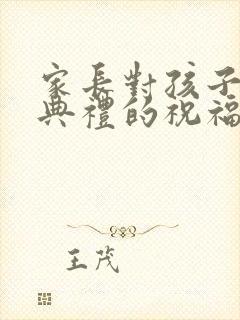 家長對孩子
典禮的祝福
王茂